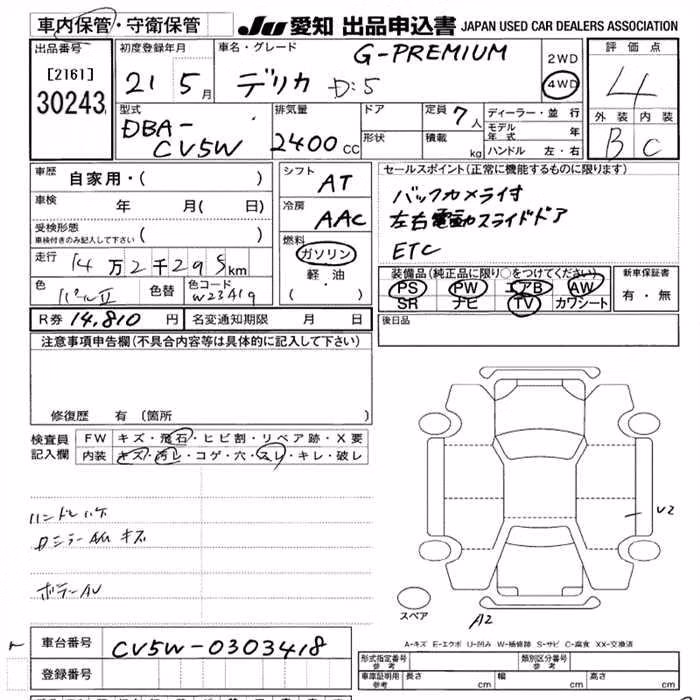 車内保管・守衛保管
JU 愛知 出品申込書 JAPAN USED CAR DEALERS ASSOCIATION
出品番号
[2161]
30243
初度登録年月
21 5月
車名・グレード
G-PREMIUM
デリカ D:5
2WD
4WD
評価点
4
外装 内装
B C
型式
DBA-
CV5W
排気量
2400 CC
ドア
形状
定員 7人
積載 kg
ディーラー・並行
モデル年式 年
ハンドル 左・右
車歴 自家用・( )
車検 年 月( 日)
受検形態
車検付きのみ記入して下さい ( )
走行 14万2千295km
色 パールII
色替
色コード
W23A19
シフト AT
冷房 AAC
燃料
ガソリン
軽・油
( ・ )
セールスポイント(正常に機能するものに限ります)
バックカメラ付
左右電動スライドドア
ETC
装備品(純正品に限り○をつけてください)
PS PW エアB AW
SR ナビ TV カワシート
新車保証書
有・無
R券 14,810 円
名変通知期限 月 日
後日品
注意事項申告欄(不具合内容等は具体的に記入して下さい)
修復歴 有〔箇所 〕
検査員
記入欄
FW キズ・飛石・ヒビ割・リペア跡・X要
内装 キズ・汚レ・コゲ・穴・スレ・キレ・破レ
ハンドルハゲ
Dミラー AM キズ
ボデーAU
U2
スペア
A2
A-キズ E-エクボ U-凹み W-補修跡 S-サビ C-腐食 XX-交換済
車台番号 CV5W-0303418
登録番号
形式指定番号
参考
類別区分番号
参考
車庫証明用
参考
長さ cm
幅 cm
高さ cm